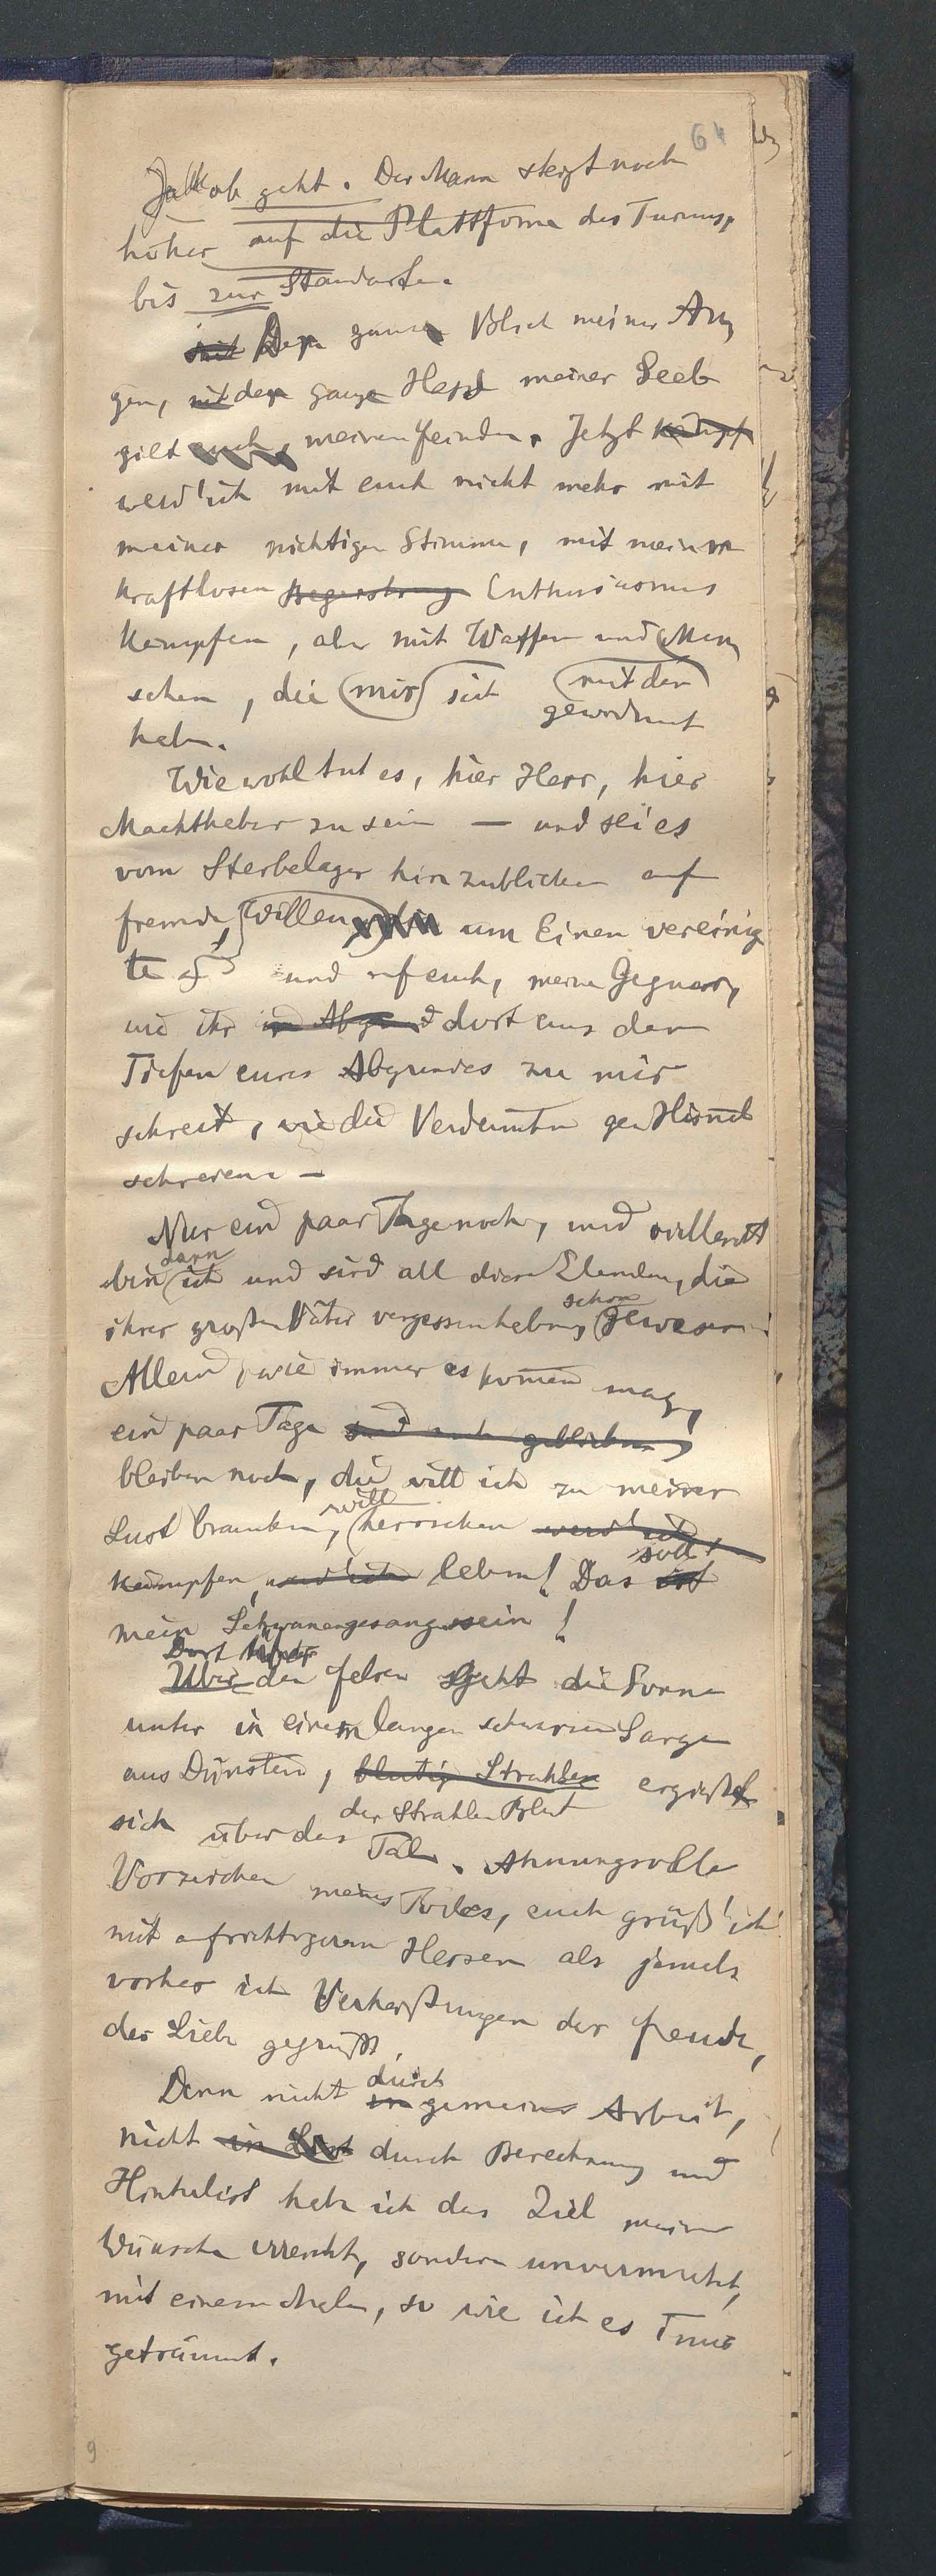 64
Jakob geht. Der Mann steigt noch
höher auf die Plattform des Turmes,
bis zur Standarte.
mit Der ganze Blick meiner Au-
gen, mit der ganze Hass meiner Seele
gilt euch, meinen Feinden. Jetzt kämpf
werd' ich mit euch nicht mehr mit
meiner nichtigen Stimme, mit meinem
kraftlosen Begeisterung Enthusiasmus
kämpfen, aber mit Waffen und Men-
schen, die mir sich
gewidmet
haben.
Wie wohl tut es, hier Herr, hier
Machthaber zu sein — und sei es
vom Sterbelager hinzublicken auf
fremde, Willen um Einen vereinig-
te und auf euch, meine Gegner,
die ihr im Abgrund dort aus den
Tiefen eures Abgrundes zu mir
schreit, wie die Verdammten gen Himmel
schreien —
Nur ein paar Tage noch, und vielleicht
dann
bin ich und sind all diese Elenden, die
schon
ihrer großen Väter vergessen haben, gewesen.
Allein, wie immer es kommen mag,
ein paar Tage sind noch geblieben,
bleiben noch, die will ich zu meiner
will
Lust brauchen, herrschen werd' ich
soll
kämpfen, werd' ich leben! Das ist
mein Schwanengesang sein!
Dort hinter
Über den Felsen geht die Sonne
unter in einem langen schwarzen Sarge
aus Dünsten, blutige Strahlen ergießt
der Strahlen Blut
sich über das Tal. Ahnungsvolle
Vorzeichen meines Todes, euch grüß' ich
mit aufrichtigerem Herzen als jemals
vorher ich Verheißungen der Freude,
der Liebe gegrüßt.
durch
Denn nicht in gemeine Arbeit,
nicht in List durch Berechnung und
Hinterlist habe ich das Ziel meiner
Wünsche erreicht, sondern unvermutet,
mit einem Male, so wie ich es
geträumt.
9